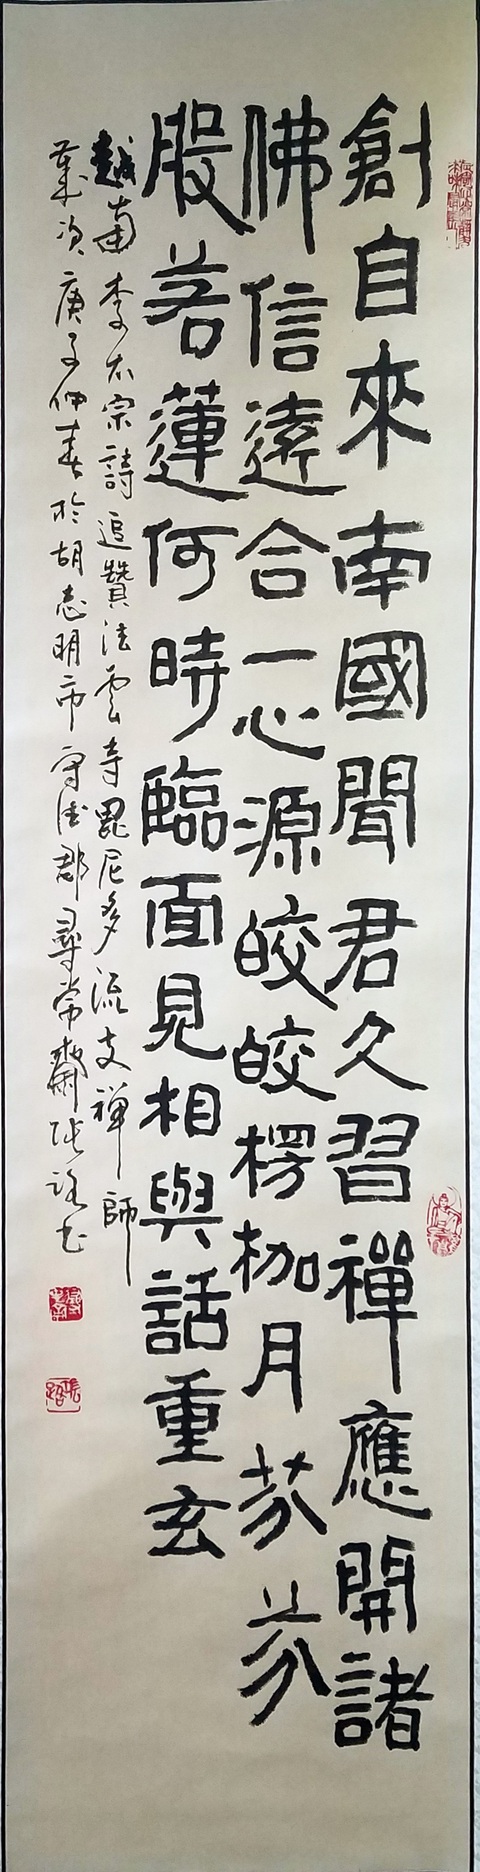 創自來南國聞君久習禪應開諸
佛信遠合一心源皎皎楞枷月芬芬
般若蓮何時臨面見相與話重玄
越南李太宗詩追贊法雲寺毘尼多流支禪師
歲次庚子仲春於胡志明市守德郡尋常齋張书